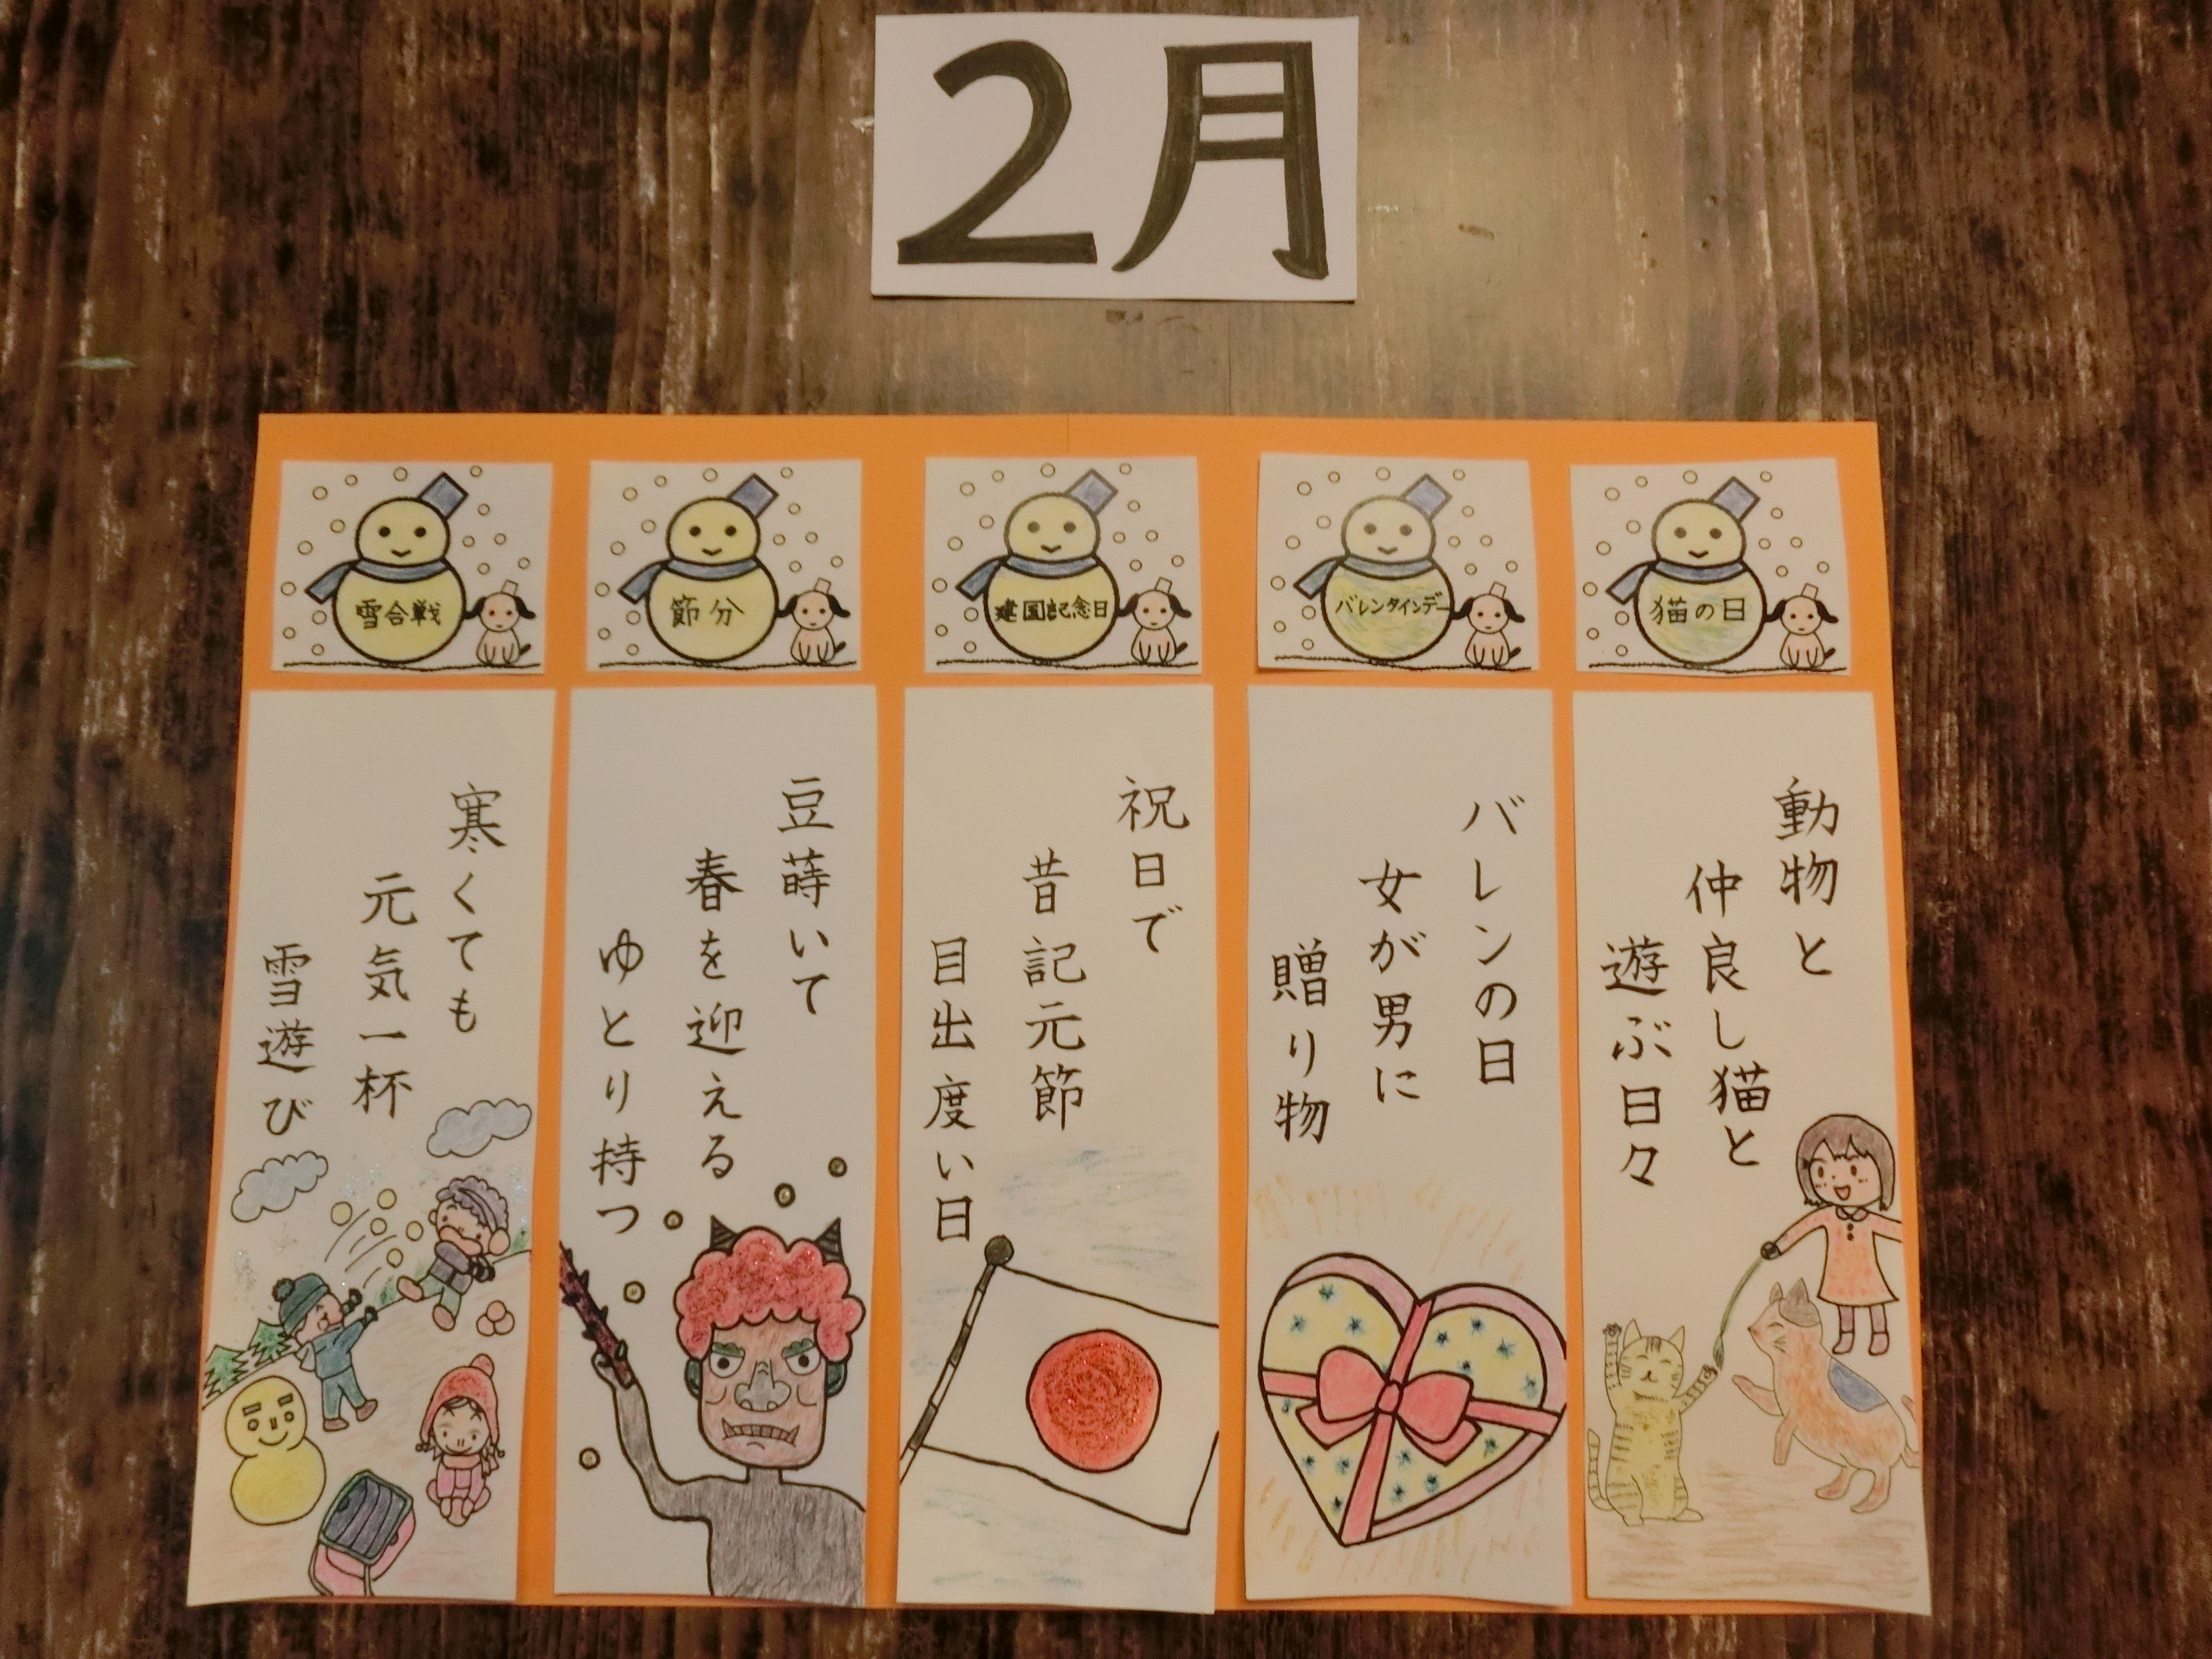 2月
雪合戦
節分
建国記念日
バレンタインデー
猫の日
寒くても
元気一杯
雪遊び
豆蒔いて
春を迎える
ゆとり持つ
祝日で
昔記元節
目出度い日
バレンの日
女が男に
贈り物
動物と
仲良し猫と
遊ぶ日々